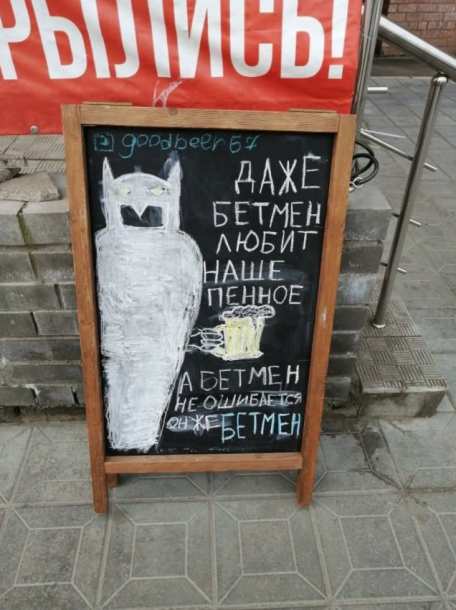 РЫЛИСЬ!
goodbeer57
ДАЖЕ
БЕТМЕН
ЛЮБИТ
НАШЕ
ПЕННОЕ
А БЕТМЕН
НЕ ОШИБАЕТСЯ
ОН ЖЕ БЕТМЕН